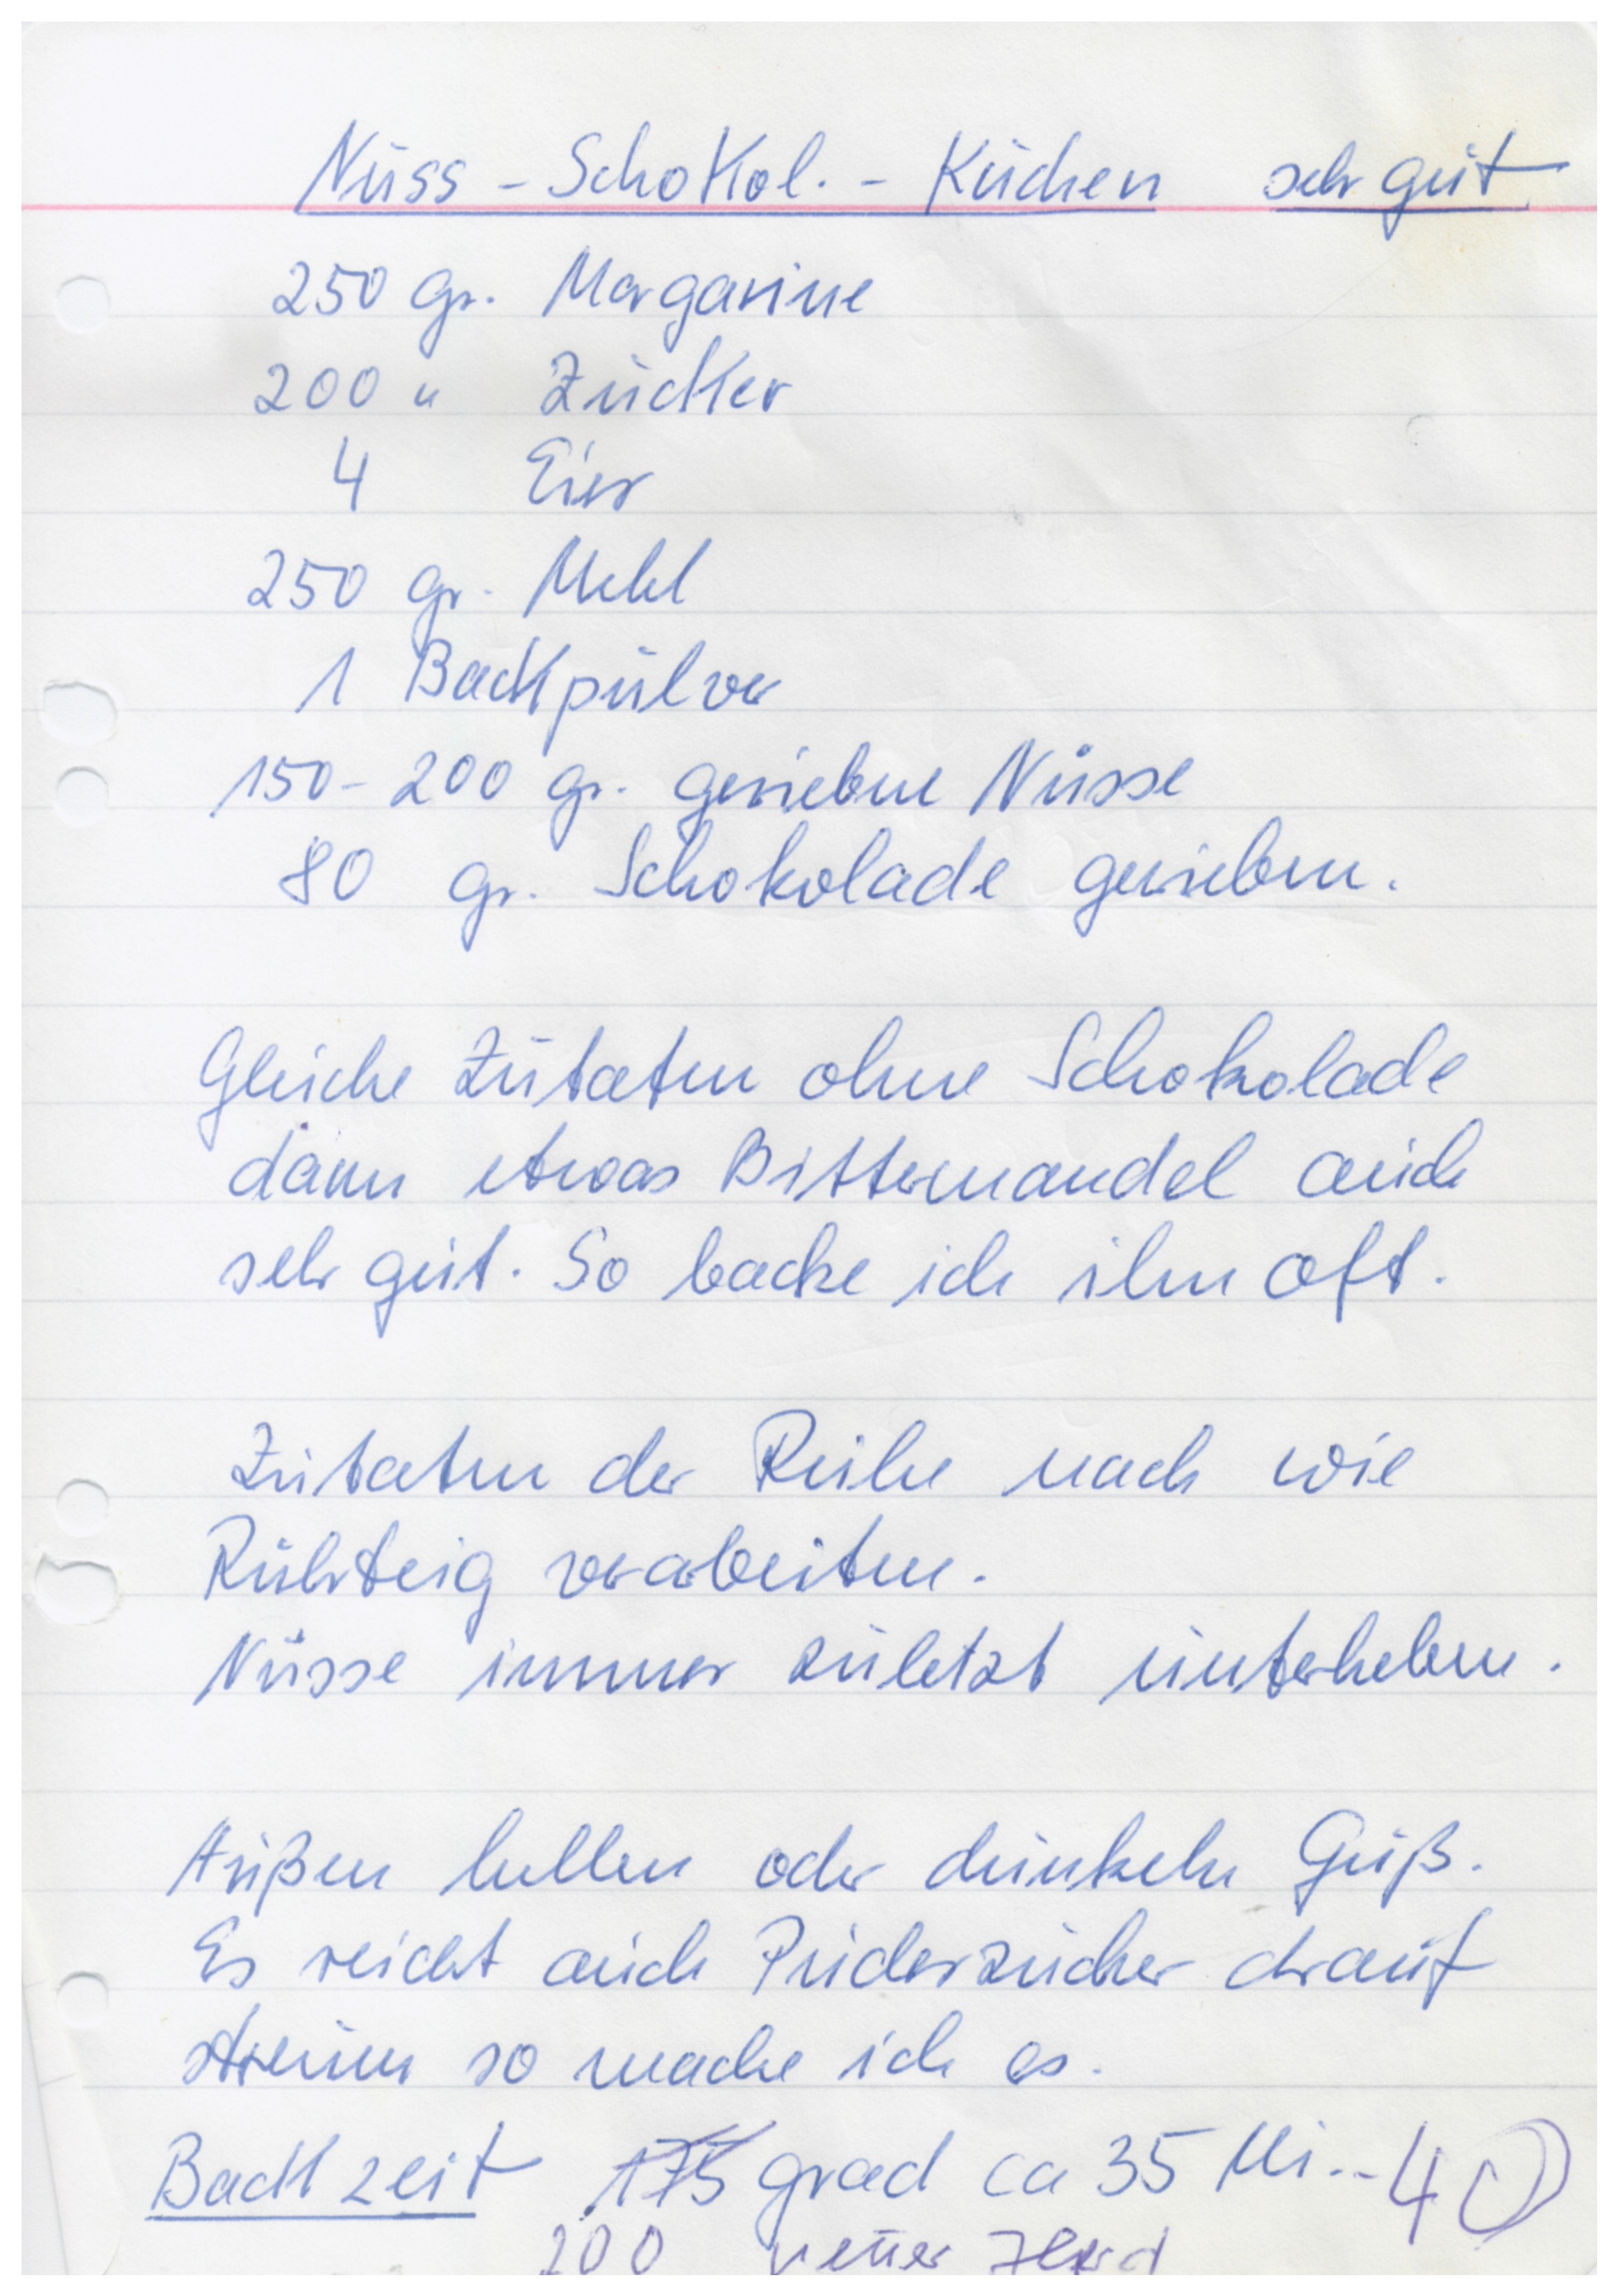 Nuss - Schokol. - Kuchen sehr gut
250 gr. Margarine
200 " Zucker
4 Eier
250 gr. Mehl
1 Backpulver
150 - 200 gr. geriebene Nüsse
80 gr. Schokolade gerieben.
Gleiche Zutaten ohne Schokolade
dann etwas Bittermandel auch
sehr gut. So backe ich ihn oft.
Zutaten der Reihe nach wie
Rührteig verarbeiten.
Nüsse immer zuletzt unterheben.
Außen hellen oder dunkeln Guß.
Es reicht auch Puderzucker drauf
streuen so mache ich es.
Backzeit 175 grad ca 35 Mi.-40
200 neuer Herd